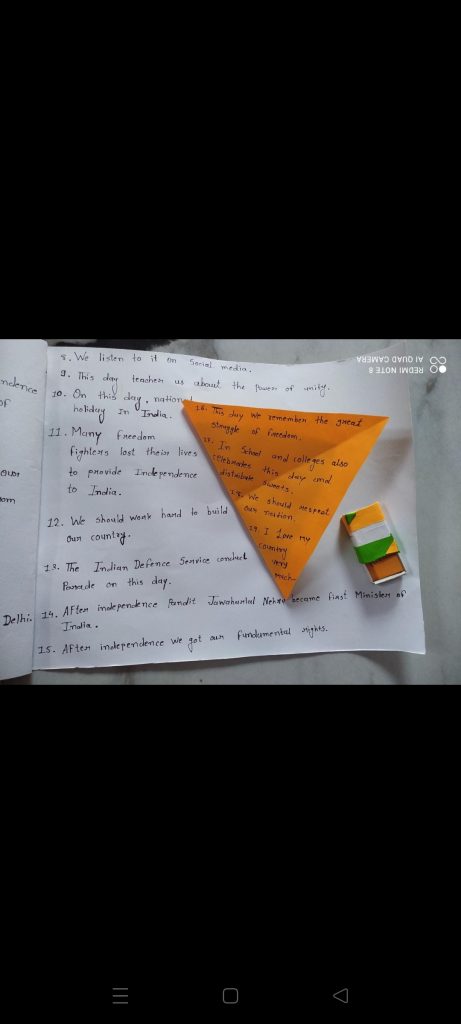 8. We listen to it on Social media.
9. This day teaches us about the Power of unity.
10. On this day, national
holiday In India.
11. Many freedom
fighters lost their lives
to provide Independence
to India.
12. We should work hard to build
our country.
13. The Indian Defence Service conduct
Parade on this day.
14. After independence Pandit Jawaharlal Nehru became first Minister of
India.
15. After independence we got our fundumental rights.
16. This day We remember the great
struggle of freedom.
17. In School and colleges also
celebrates this day and
distribute sweets.
18. We should respect
our nation.
19. I Love my
country
very
much.
ndence
of
Delhi.
REDMI NOTE 8
AI QUAD CAMERA